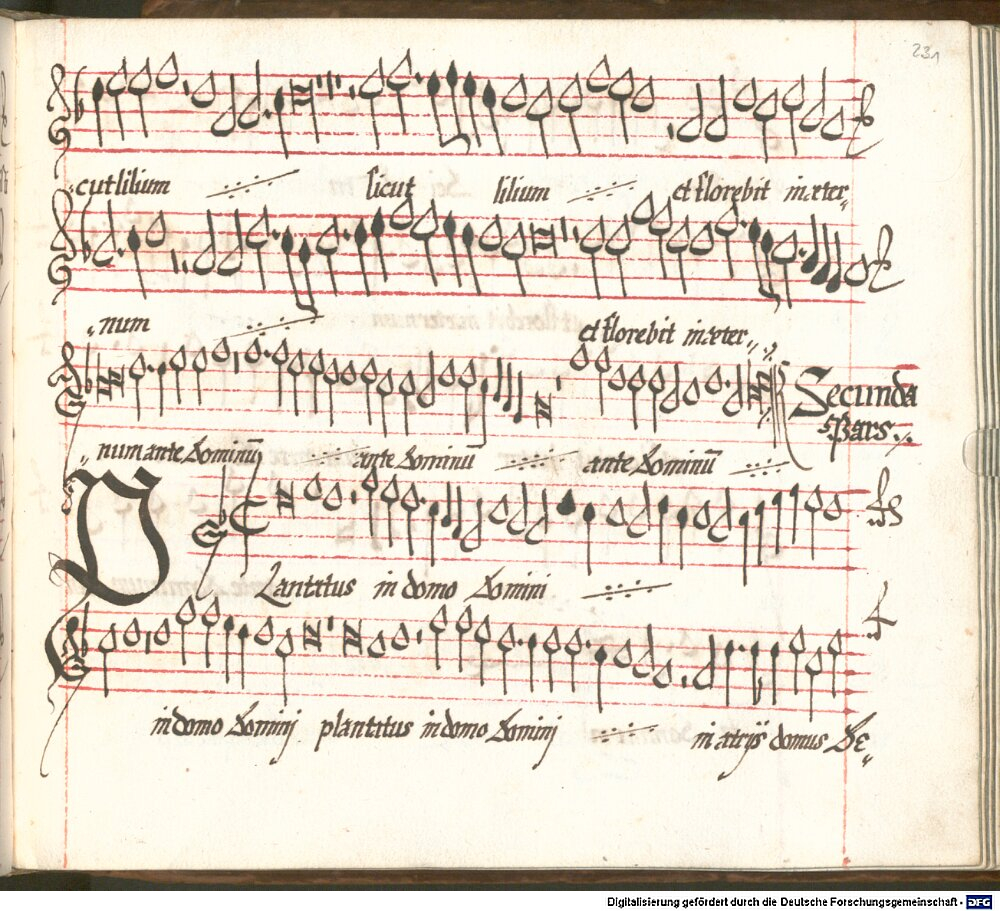 231
cut lilium sicut lilium et florebit in æter-
num et florebit in æter-
num ante Dominū ante Dominū ante Dominū
Secunda
Pars
Plantatus in domo Domini
in domo Domini plantatus in domo Domini in atrijs domus De-
Digitalisierung gefördert durch die Deutsche Forschungsgemeinschaft - DFG